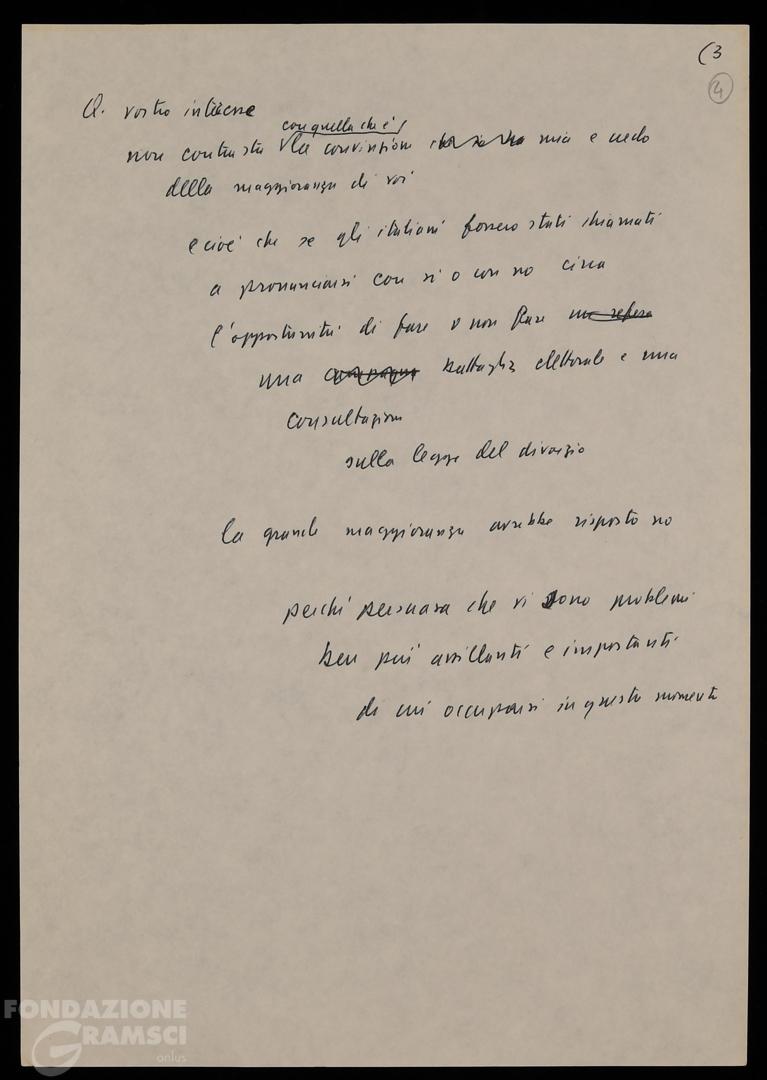 (3
4
Q. vostro interesse
con quella che è
non contrasta la convinzione mia e credo
della maggioranza di voi
e cioè che se gli italiani fossero stati chiamati
a pronunciarsi con si o con no circa
l'opportunità di fare o non fare
una battaglia elettorale e una
consultazione
sulla legge del divorzio
la grande maggioranza avrebbe risposto no
perché persuasa che vi sono problemi
ben più assillanti e importanti
di cui occuparsi in questo momento
FONDAZIONE
GRAMSCI
onlus